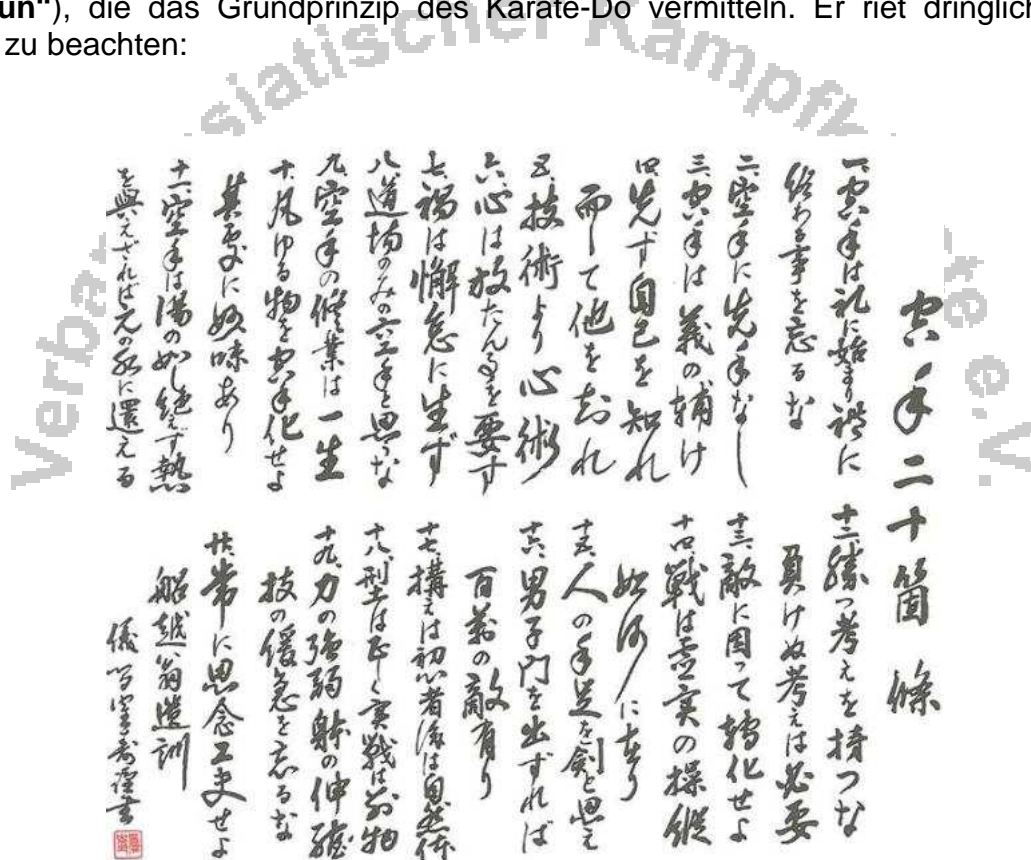 un"), die das Grundprinzip des Karate-Do vermitteln. Er riet dringlich
zu beachten:
siatischer Kampfk
Verba
te e.V.
空手二十箇條
一、空手は礼に始まり禮に
終わる事を忘るな
二、空手に先手なし
三、空手は義の輔け
四、先ず自己を知れ
而して他を知れ
五、技術より心術
六、心は放たん事を要す
七、禍は懈怠に生ず
八、道場のみの空手と思うな
九、空手の修業は一生
十、凡ゆる物を空手化せよ
其處に妙味あり
十一、空手は湯の如し絶えず熱
を與えざれば元の水に還える
十二、勝つ考えを持つな
負けぬ考えは必要
十三、敵に因って轉化せよ
十四、戦は虚実の操縦
如何に在り
十五、人の手足を剣と思え
十六、男子門を出ずれば
百萬の敵有り
十七、構えは初心者後は自然体
十八、型は正しく実戦は別物
十九、力の強弱躰の伸縮
技の緩急を忘るな
廿、常に思念工夫せよ
船越翁遺訓
謹書